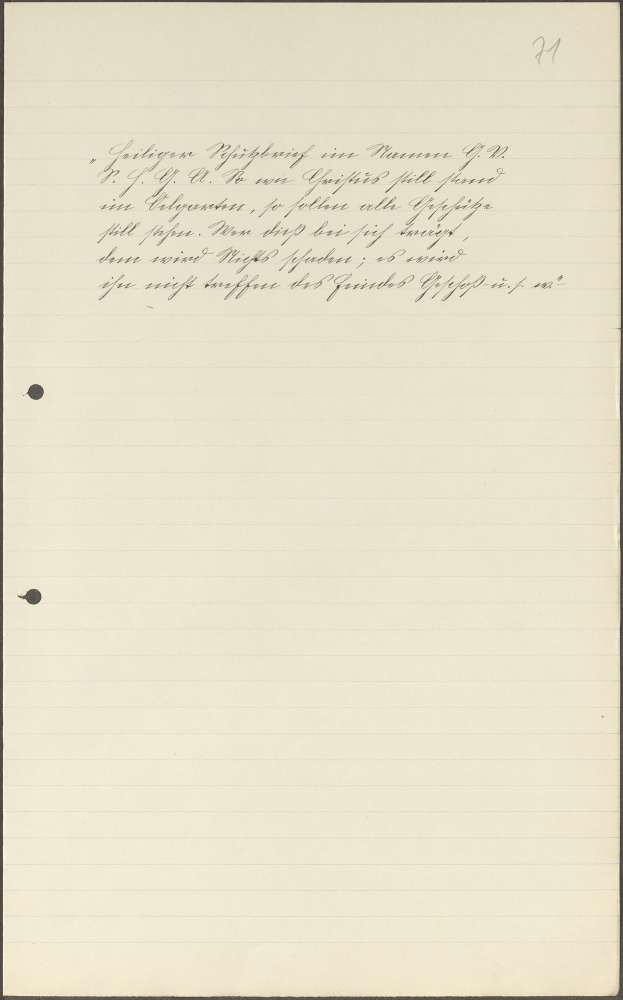 71
„Heiliger Schutzbrief im Namen G. V.
S. H. G. A. So wn Christus still stand
im Oelgarten, so sollen alle Geschütze
still stehen. Wer dieß bei sich trägt,
dem wird Nichts schaden; es wird
ihn nicht treffen des Feindes Geschoß u. s. w."